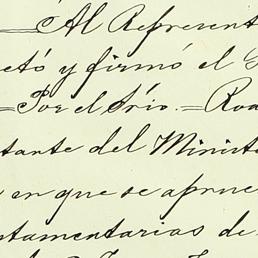 =Al Represent
etó y firmó el
=Por el Srio.=Roa
tante del Ministe
en que se aprue
tamentarias de